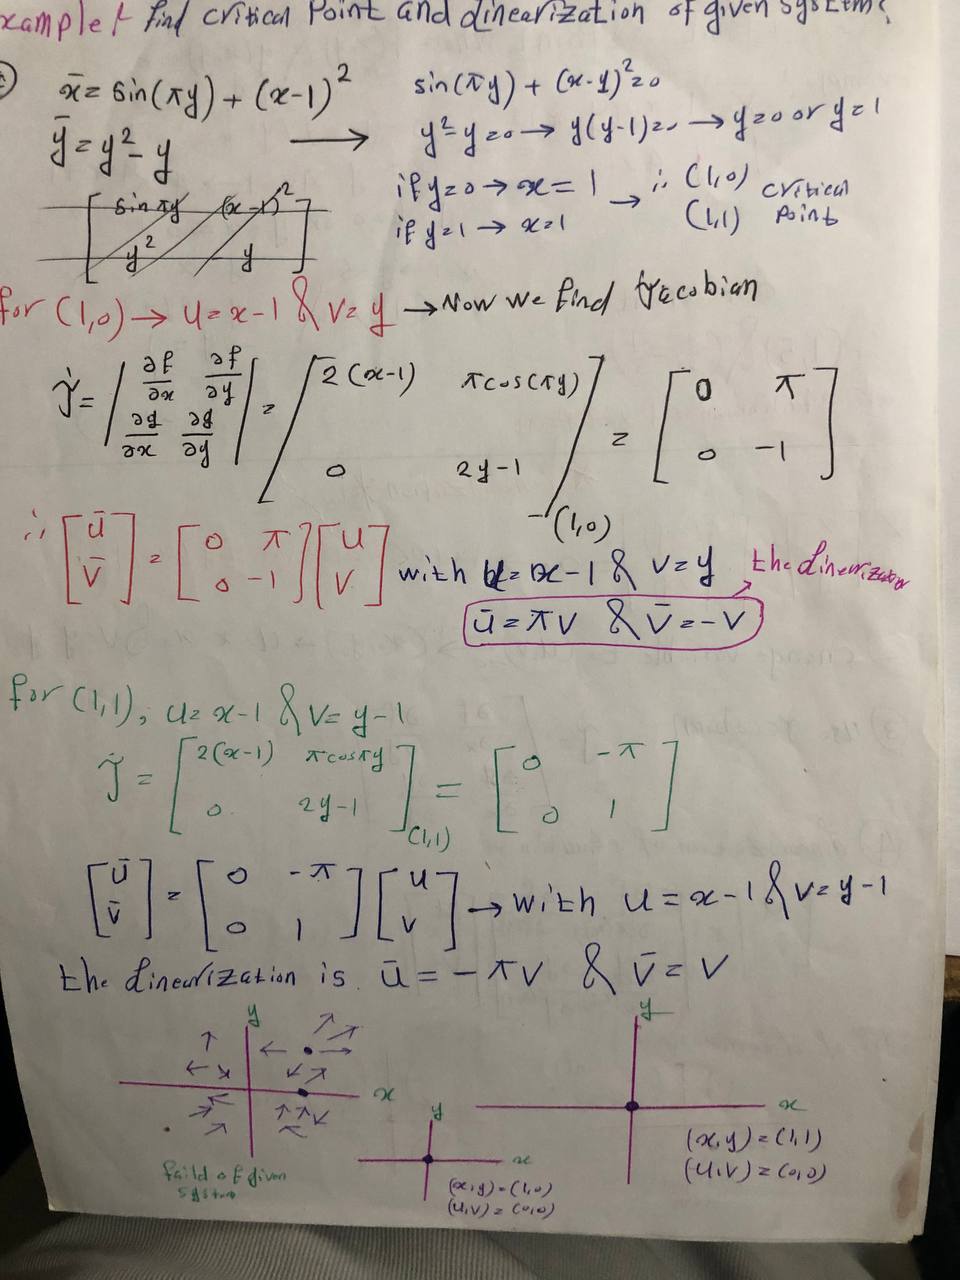 xample: find critical Point and Linearization of given system:
x̄ = sin(πy) + (x-1)²
ȳ = y² - y
→
sin(πy) + (x-1)² = 0
y² - y = 0 → y(y-1) = 0 → y = 0 or y = 1
if y = 0 → x = 1 → ∴ (1,0) critical
if y = 1 → x = 1 (1,1) Point
sin πy (x-1)²
y² y
for (1,0) → u = x-1 & v = y → Now we find Jacobian
J = | ∂f/∂x ∂f/∂y ; ∂g/∂x ∂g/∂y | = [ 2(x-1) πcos(πy) ; 0 2y-1 ] (1,0) = [ 0 π ; 0 -1 ]
∴ [ ū ; v̄ ] = [ 0 π ; 0 -1 ] [ u ; v ] with u = x-1 & v = y the Linearization
ū = πv & v̄ = -v
for (1,1), u = x-1 & v = y-1
J = [ 2(x-1) πcosπy ; 0 2y-1 ] (1,1) = [ 0 -π ; 0 1 ]
[ ū ; v̄ ] = [ 0 -π ; 0 1 ] [ u ; v ] → with u = x-1 & v = y-1
the Linearization is ū = -πv & v̄ = v
y
x
faild of given
system
y
x
(x,y) = (1,0)
(u,v) = (0,0)
y
x
(x,y) = (1,1)
(u,v) = (0,0)